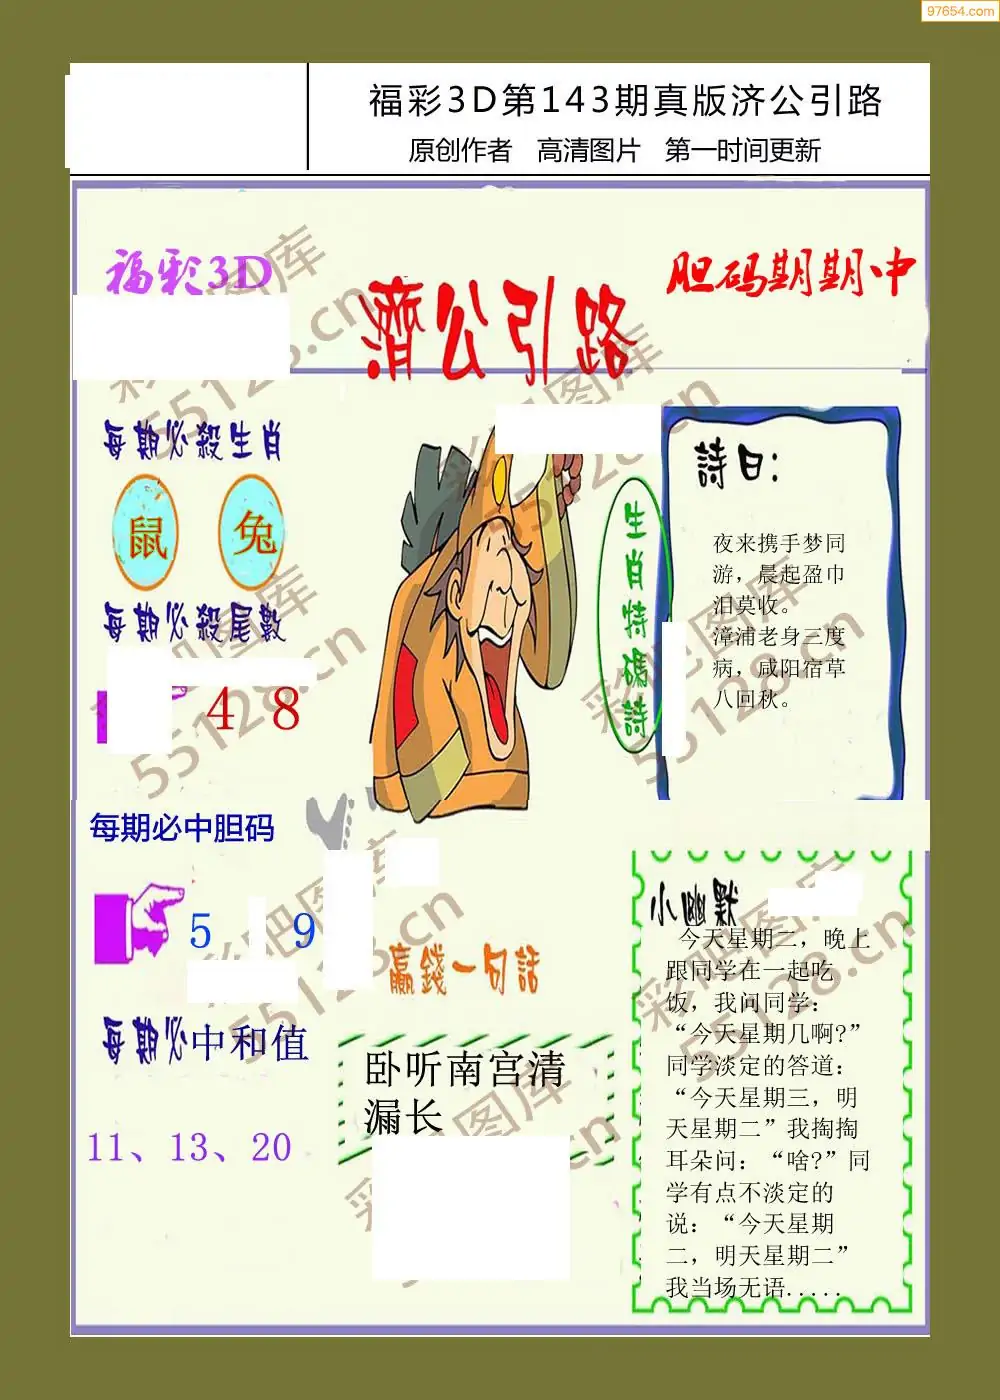 97654.com
福彩3D第143期真版济公引路
原创作者 高清图片 第一时间更新
福彩3D
濟公引路
胆码期期中
每期必殺生肖
鼠 兔
每期必殺尾數
4 8
生肖特碼詩
詩曰：
夜来携手梦同
游，晨起盈巾
泪莫收。
漳浦老身三度
病，咸阳宿草
八回秋。
每期必中胆码
5 9
每期必中和值
11、13、20
贏錢一句話
卧听南宫清
漏长
小幽默
今天星期二，晚上
跟同学在一起吃
饭，我问同学：
“今天星期几啊?”
同学淡定的答道：
“今天星期三，明
天星期二”我掏掏
耳朵问：“啥?”同
学有点不淡定的
说：“今天星期
二，明天星期二”
我当场无语.....
彩吧图库
55128.cn
彩吧图库
55128.cn
彩吧图库
55128.cn
彩吧图库
55128.cn
彩吧图库
55128.cn
彩吧图库
55128.cn